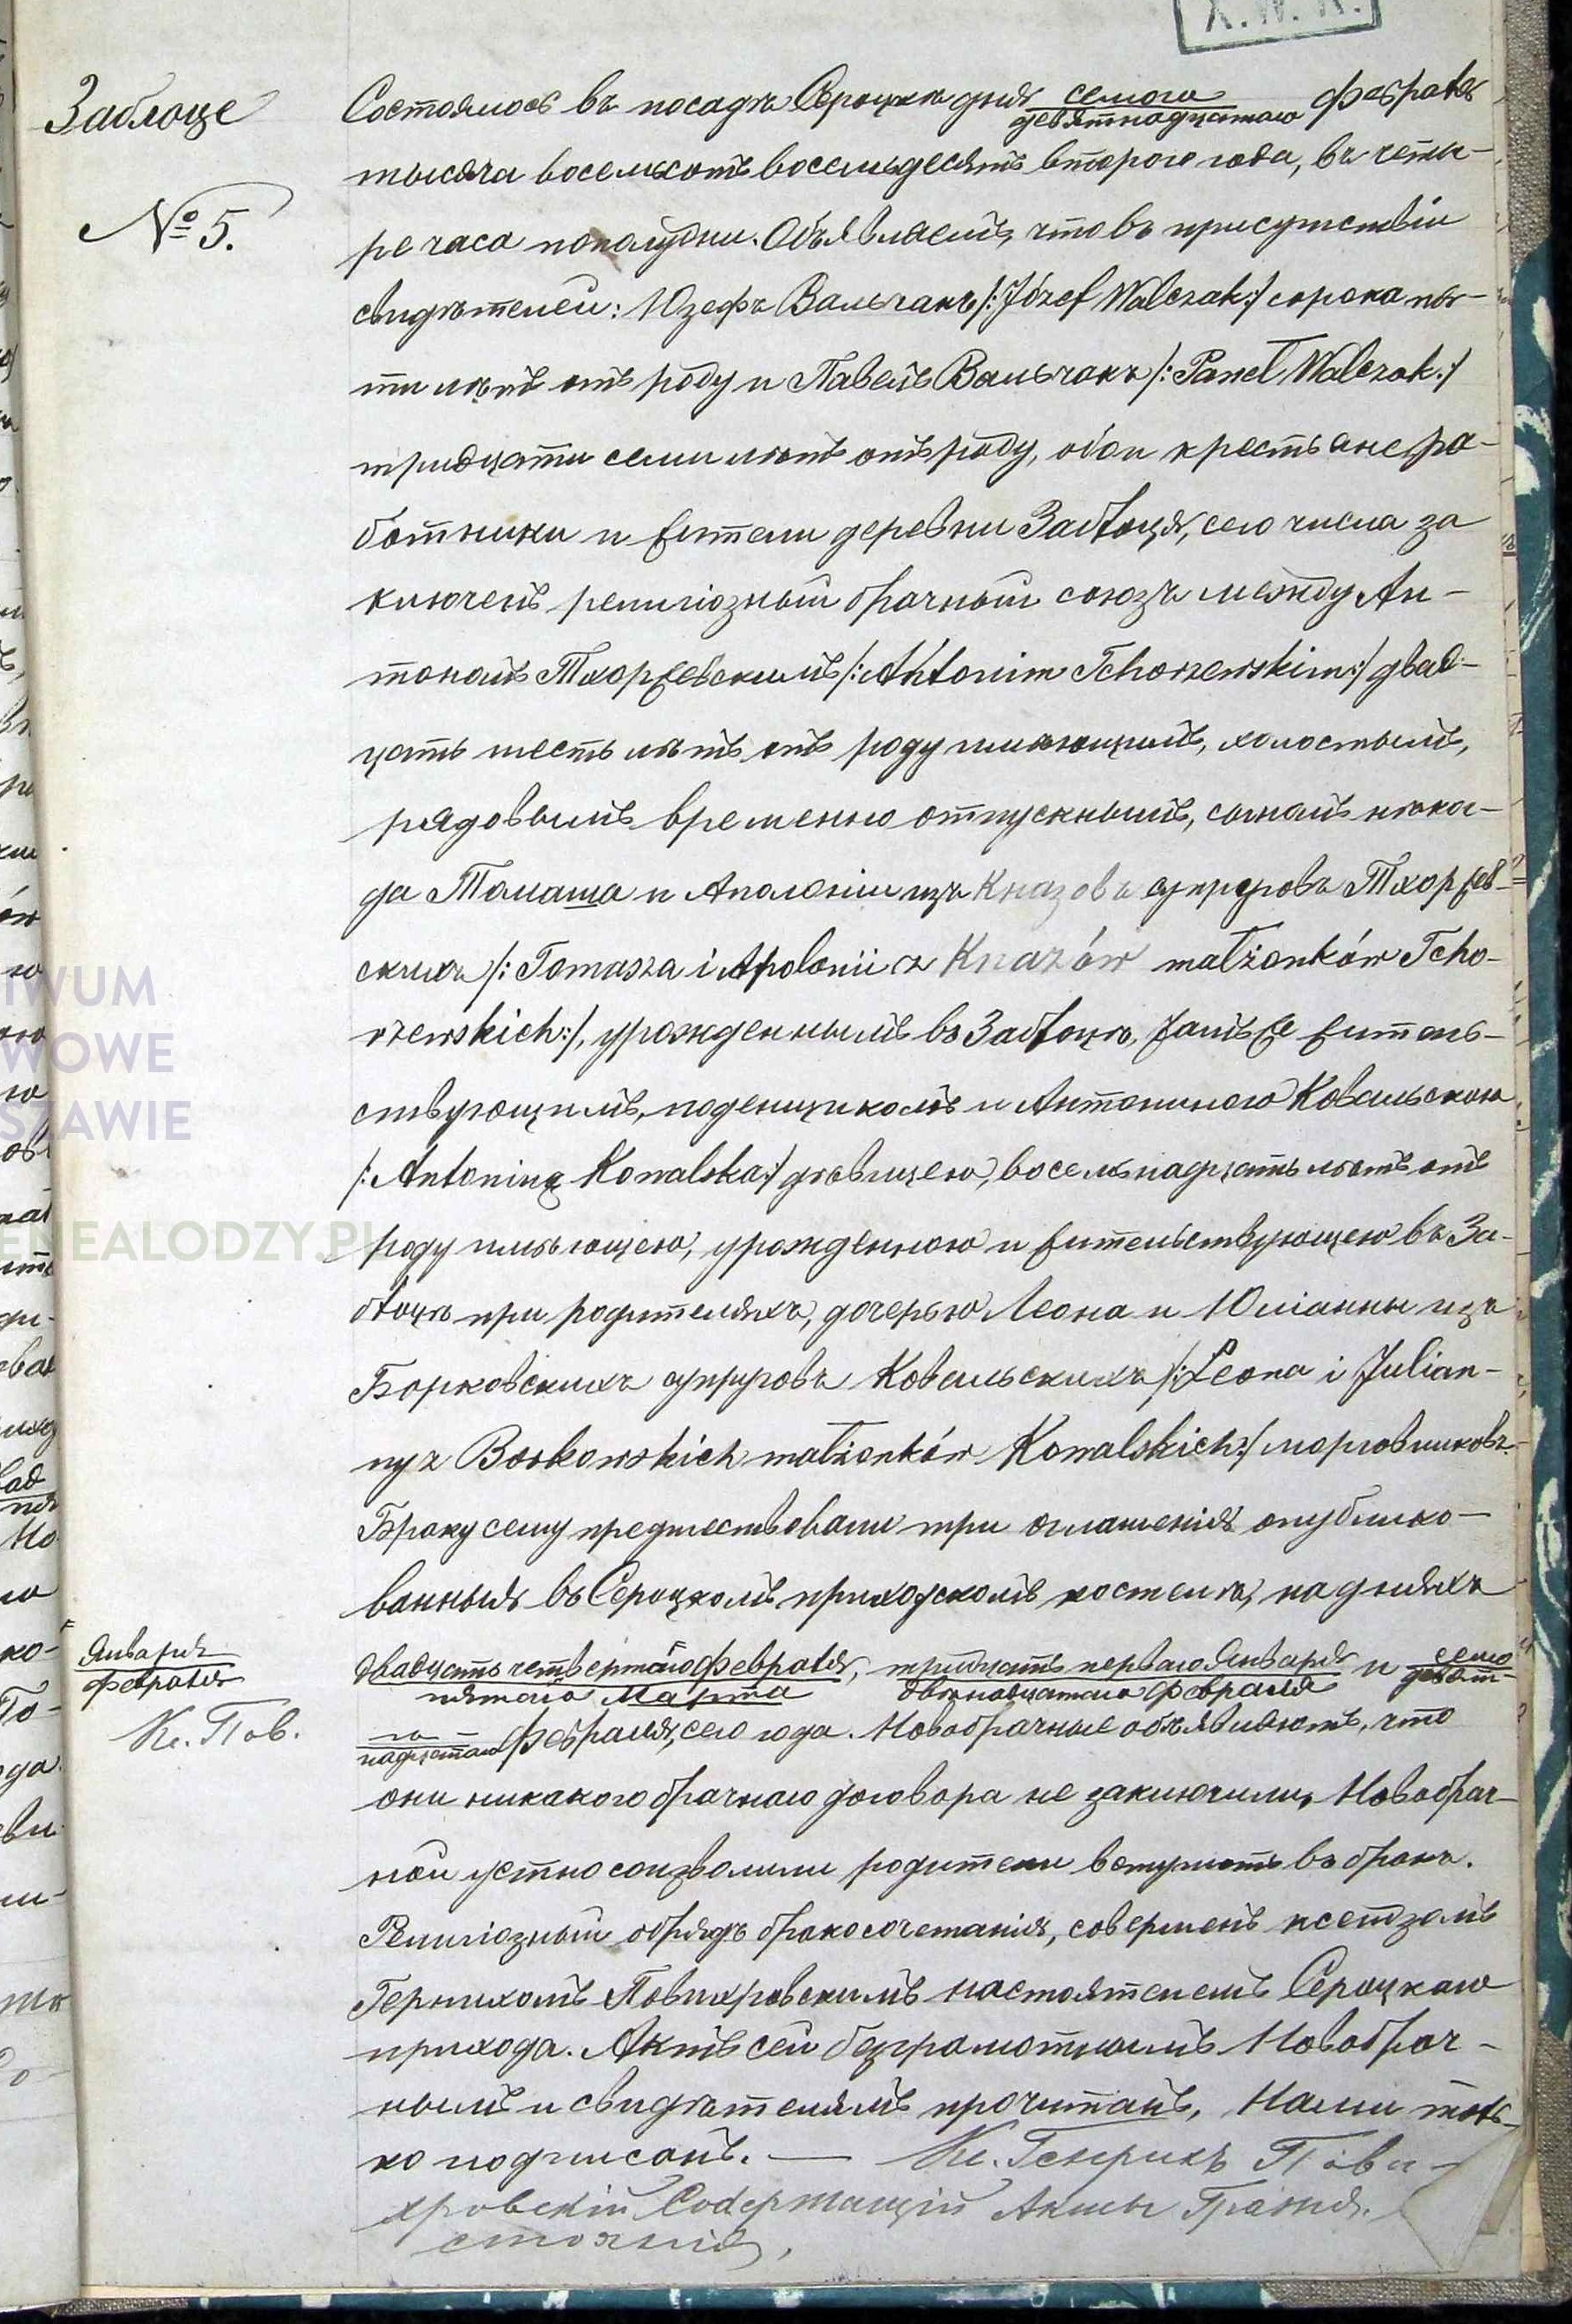 X. W. R.
Заблоце
№ 5.
Состоялось въ посадѣ Сероцкѣ дня седмого Февраля
девятнадцатаго
тысяча восемьсотъ восемьдесятъ второго года, въ четы-
ре часа пополудни. Объявляемъ, что въ присутствіи
свидѣтелей: Юзефъ Вальчакъ /:Józef Walczak:/ сорока пя-
ти лѣтъ отъ роду и Павелъ Вальчакъ /:Paweł Walczak:/
тридцати семи лѣтъ отъ роду, обои крестьяне ра-
ботники и жители деревни Заблоця, сего числа за
ключенъ религіозный брачный союзъ между Ан-
тонимъ Тхоржевскимъ /:Antonim Tchorzewskim:/ двад-
цать шесть лѣтъ отъ роду имѣющимъ, холостымъ,
рядовымъ временно отпускнымъ, сыномъ нѣког-
да Томаша и Аполоніи изъ Кназовъ супруговъ Тхоржев-
скихъ /:Tomasza i Apolonii z Knazów małżonków Tcho-
rzewskich:/, урожденнымъ въ Заблоцѣ, тамъ же житель-
ствующимъ, поденщикомъ и Антониною Ковальскою
/:Antoniną Kowalską:/ дѣвицею, восемьнадцать лѣтъ отъ
роду имѣющею, урожденною и жительствующею въ За-
блоцѣ при родителяхъ, дочерью Леона и Юліанны изъ
Борковскихъ супруговъ Ковальскихъ /:Leona i Julian-
ny z Borkowskich małżonków Kowalskich:/ морговниковъ.
Браку сему предшествовали три оглашенія опублико-
ванныя въ Сероцкомъ приходскомъ костелѣ, на дняхъ
Января
Февраля
Кс. Пов.
двадцать четвертаго Февраля, тридцать перваго Января и седмо
пятаго Марта двѣнадцатаго Февраля девят-
го
надцатаго Февраля, сего года. Новобрачные объявляютъ, что
они никакого брачнаго договора не заключили, Новобрач-
ной устно соизволили родители вступить въ бракъ.
Религіозный обрядъ бракосочетанія, совершенъ ксендзомъ
Генрихомъ Повихровскимъ настоятелемъ Сероцкаго
прихода. Актъ сей безграмотнымъ Новобрач-
нымъ и свидѣтелямъ прочитанъ, Нами толь-
ко подписанъ. — Кс. Генрихъ Пови-
хровскій Содержащій Акты Гражд.
стоянія,
IWUM
WOWE
SZAWIE
ENEALODZY.PL